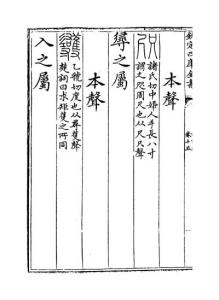 欽定四庫全書
卷十五
本聲
諸氏切中婦人手長八寸
謂之咫周尺也从尺只聲
尋之屬
本聲
乙虢切度也从尋蒦聲
楚詞曰求矩蒦之所同
入之屬